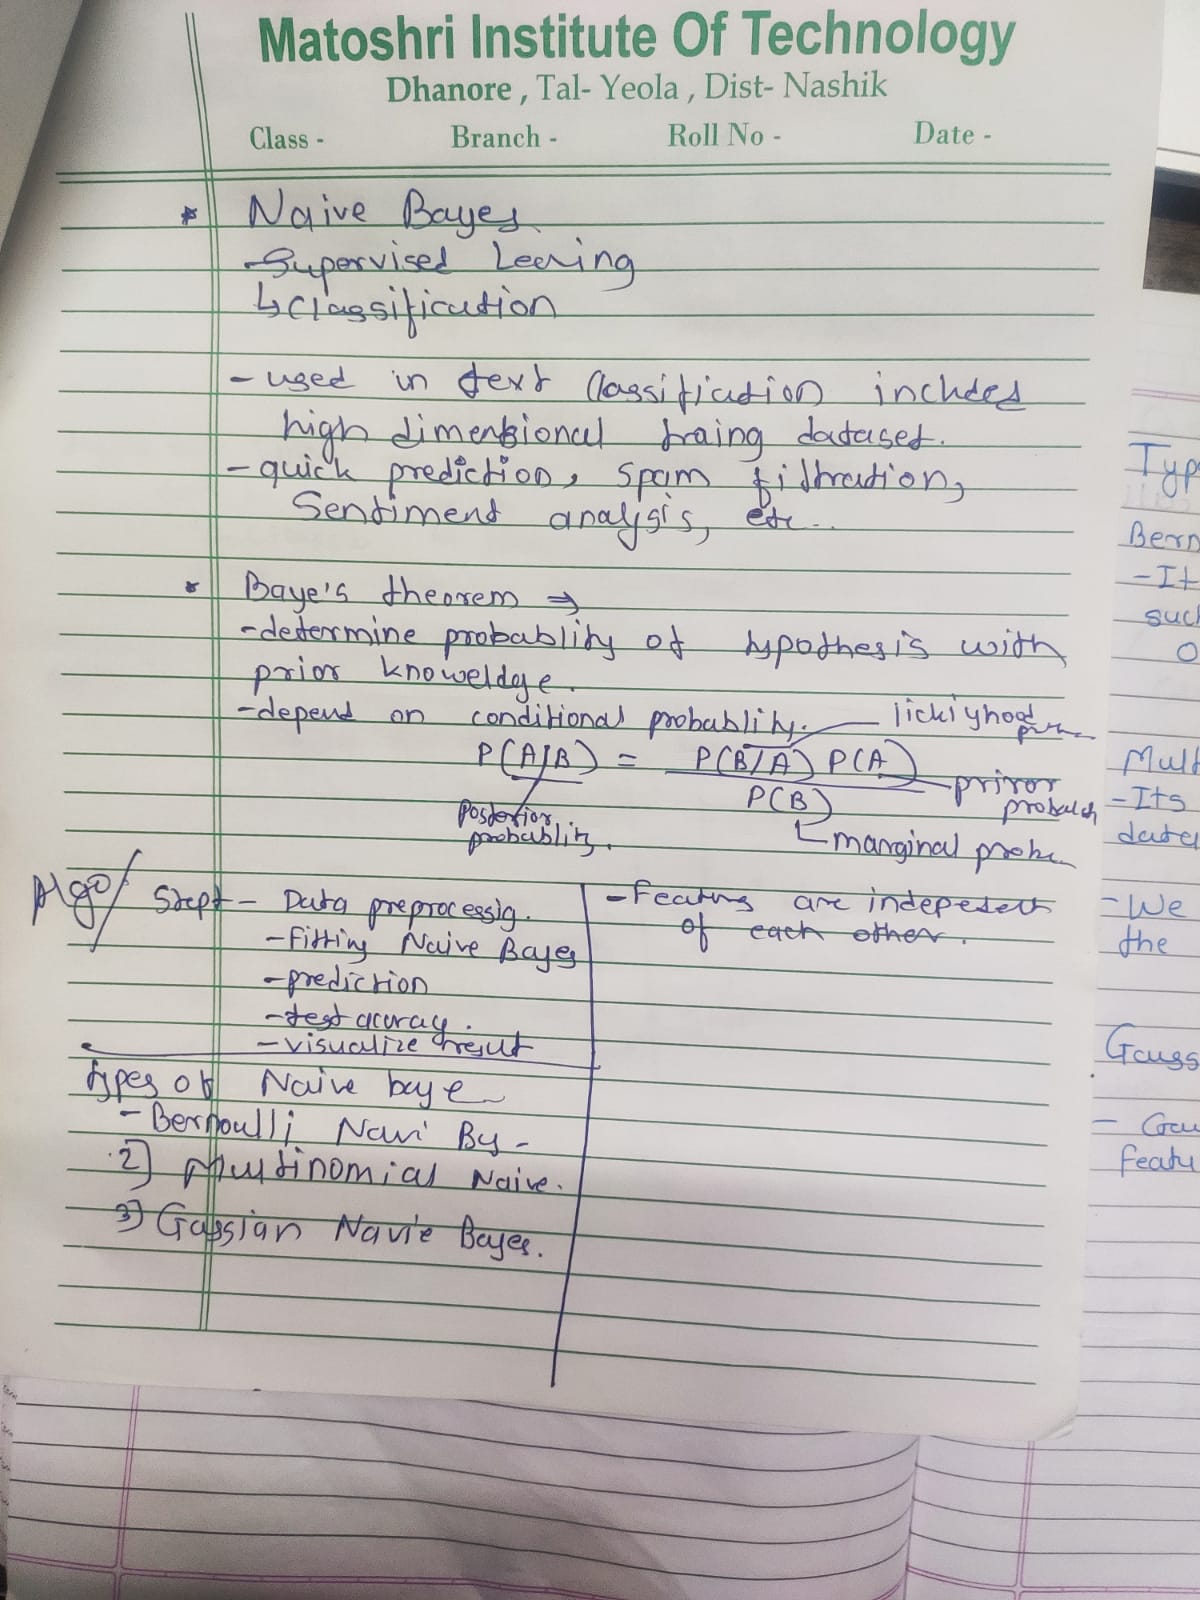 Matoshri Institute Of Technology
Dhanore , Tal- Yeola , Dist- Nashik
Class -    Branch -    Roll No -    Date -
* Naive Bayes
- Supervised Leaning
↳ Classification
- used in text classification includes
high dimensional traing dataset.
- quick prediction, spam filtration,
Sentiment analysis, etc..
* Baye's theorem ⇒
- determine probablity of hypothesis with
prior knoweldge.
- depend on conditional probablity.
lickiyhood
P(A/B) = P(B/A) P(A)
P(B)
privor
Posterior
probablity.
marginal
Algo/ Stept - Data preprocessig.
- Fitting Naive Bayes
- prediction
- test accuracy.
- visualize result
- Features are indepesdett
of each other.
types of Naive baye
- Bernoulli Navi By -
2) Multinomial Naive.
3) Gassian Navie Bayes.
Typ
Bern
- It
such
O
Mult
- Its
data
- We
the
Gauss
- Gau
featu